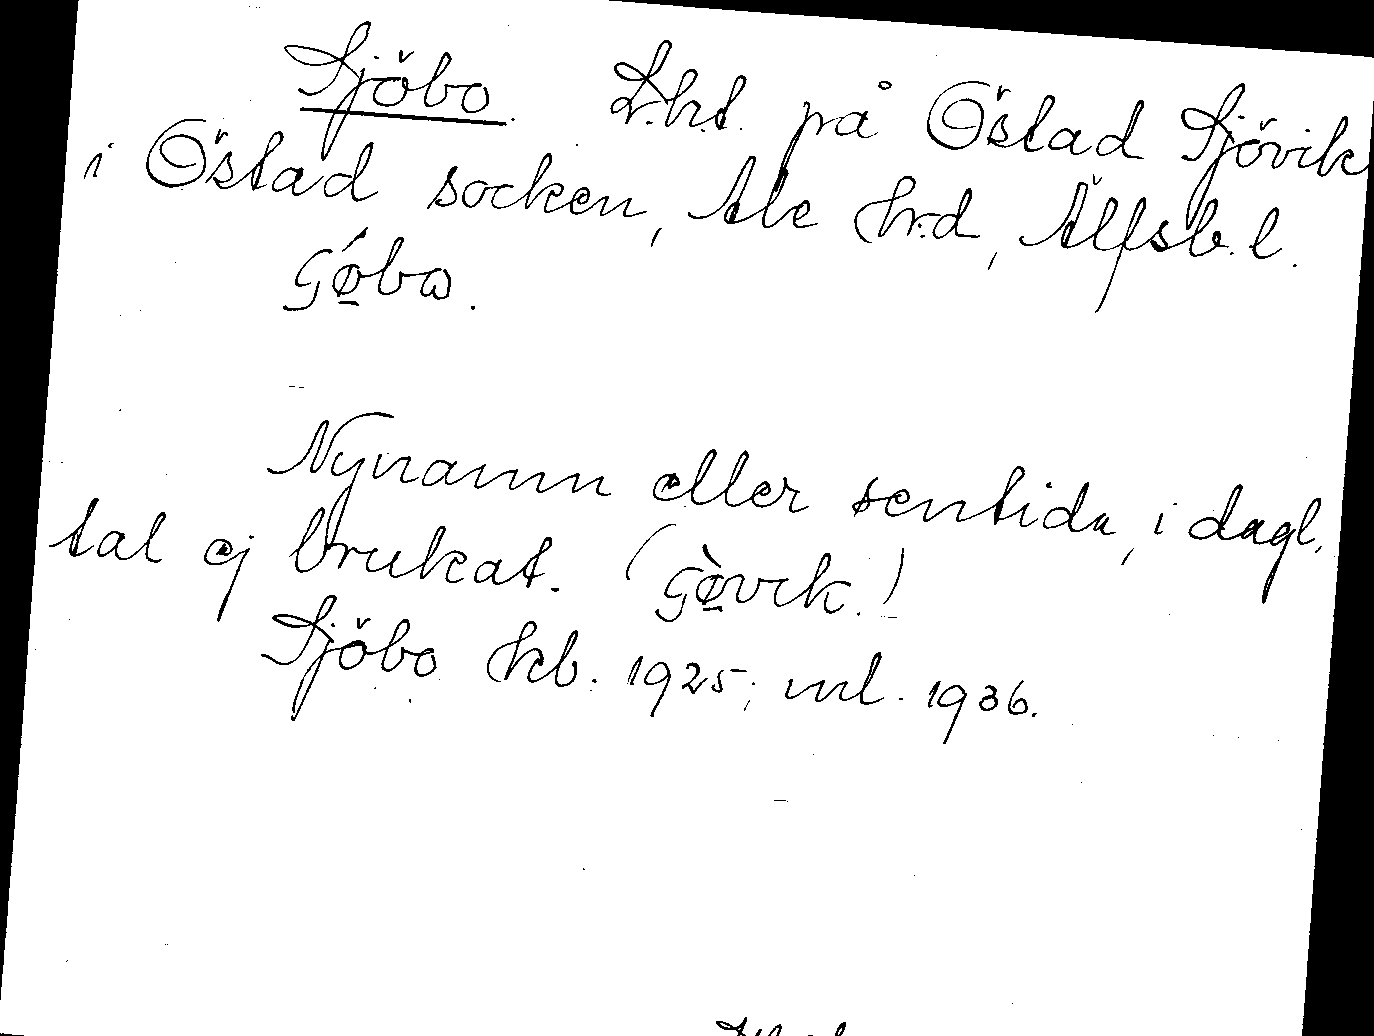 Sjöbo. L.h.t. på Östad Sjövik
i Östad socken, Ale hrd, Älfsb. l.
ɕǿ̱bɷ.
Nynamn eller sentida, i dagl.
tal ej brukat. (ɕø̱̀vɩk.)
Sjöbo hb. 1925; ml. 1936.